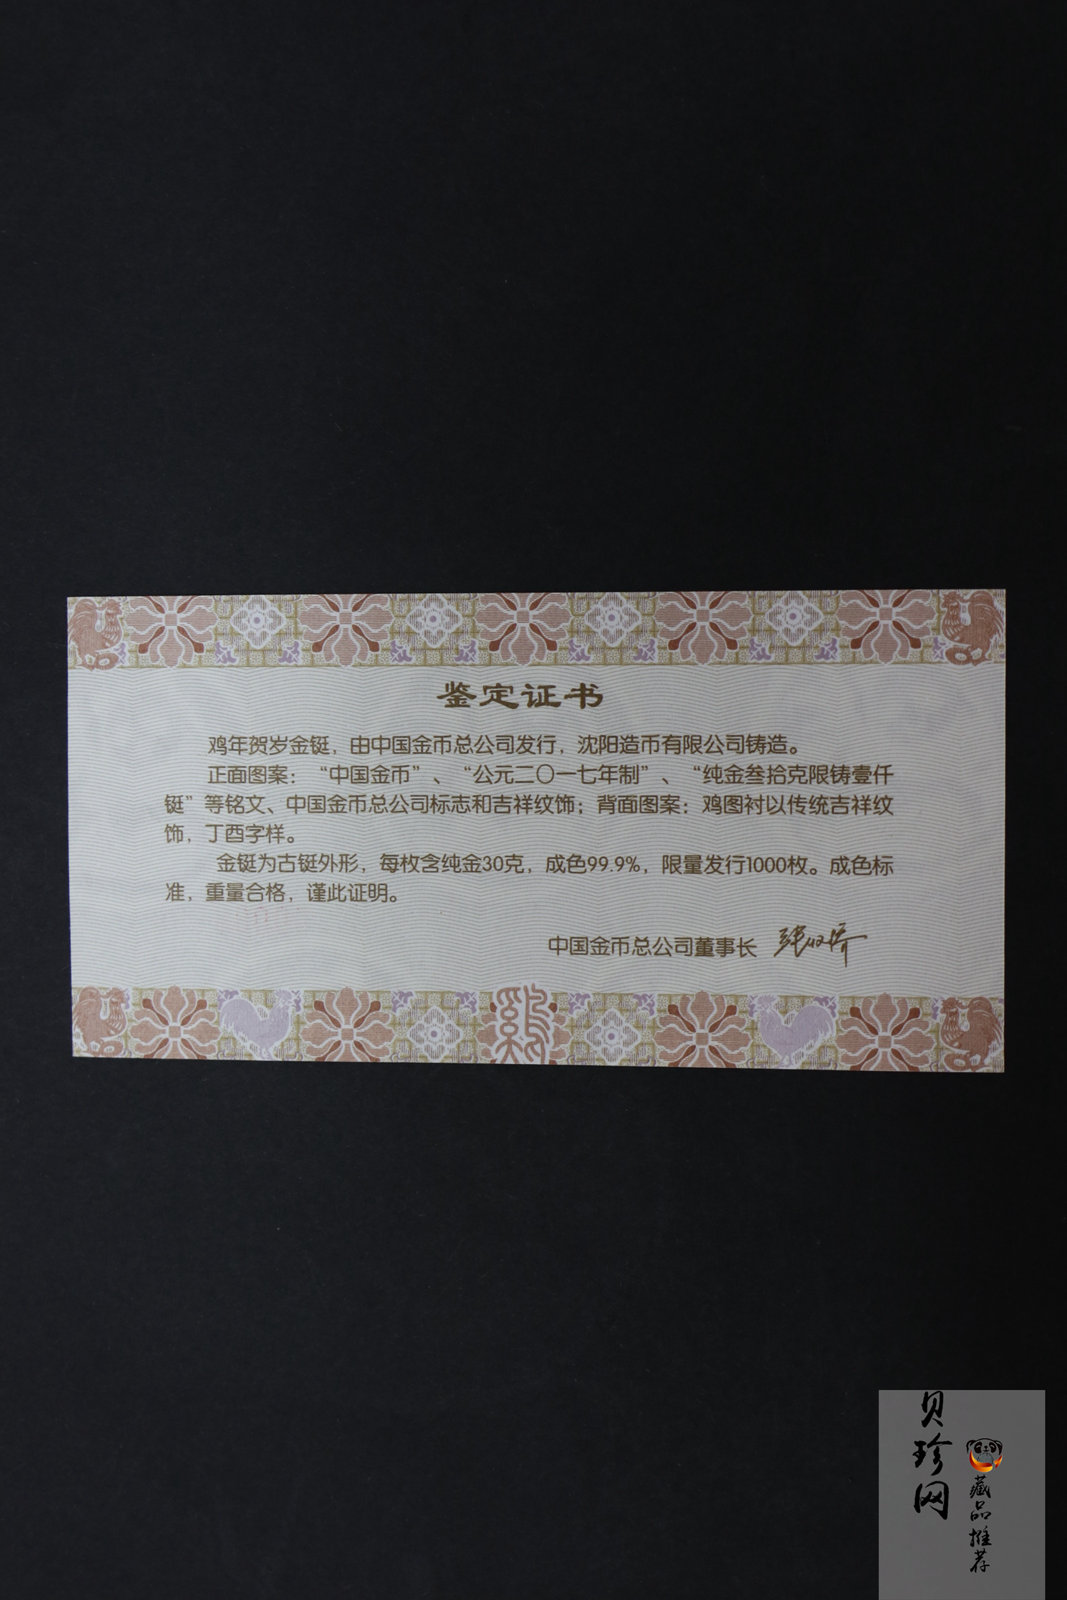 鉴定证书
鸡年贺岁金铤，由中国金币总公司发行，沈阳造币有限公司铸造。
正面图案：“中国金币”、“公元二〇一七年制”、“纯金叁拾克限铸壹仟
铤”等铭文、中国金币总公司标志和吉祥纹饰；背面图案：鸡图衬以传统吉祥纹
饰，丁酉字样。
金铤为古铤外形，每枚含纯金30克，成色99.9%，限量发行1000枚。成色标
准，重量合格，谨此证明。
中国金币总公司董事长
鷄
贝珍网
藏品推荐